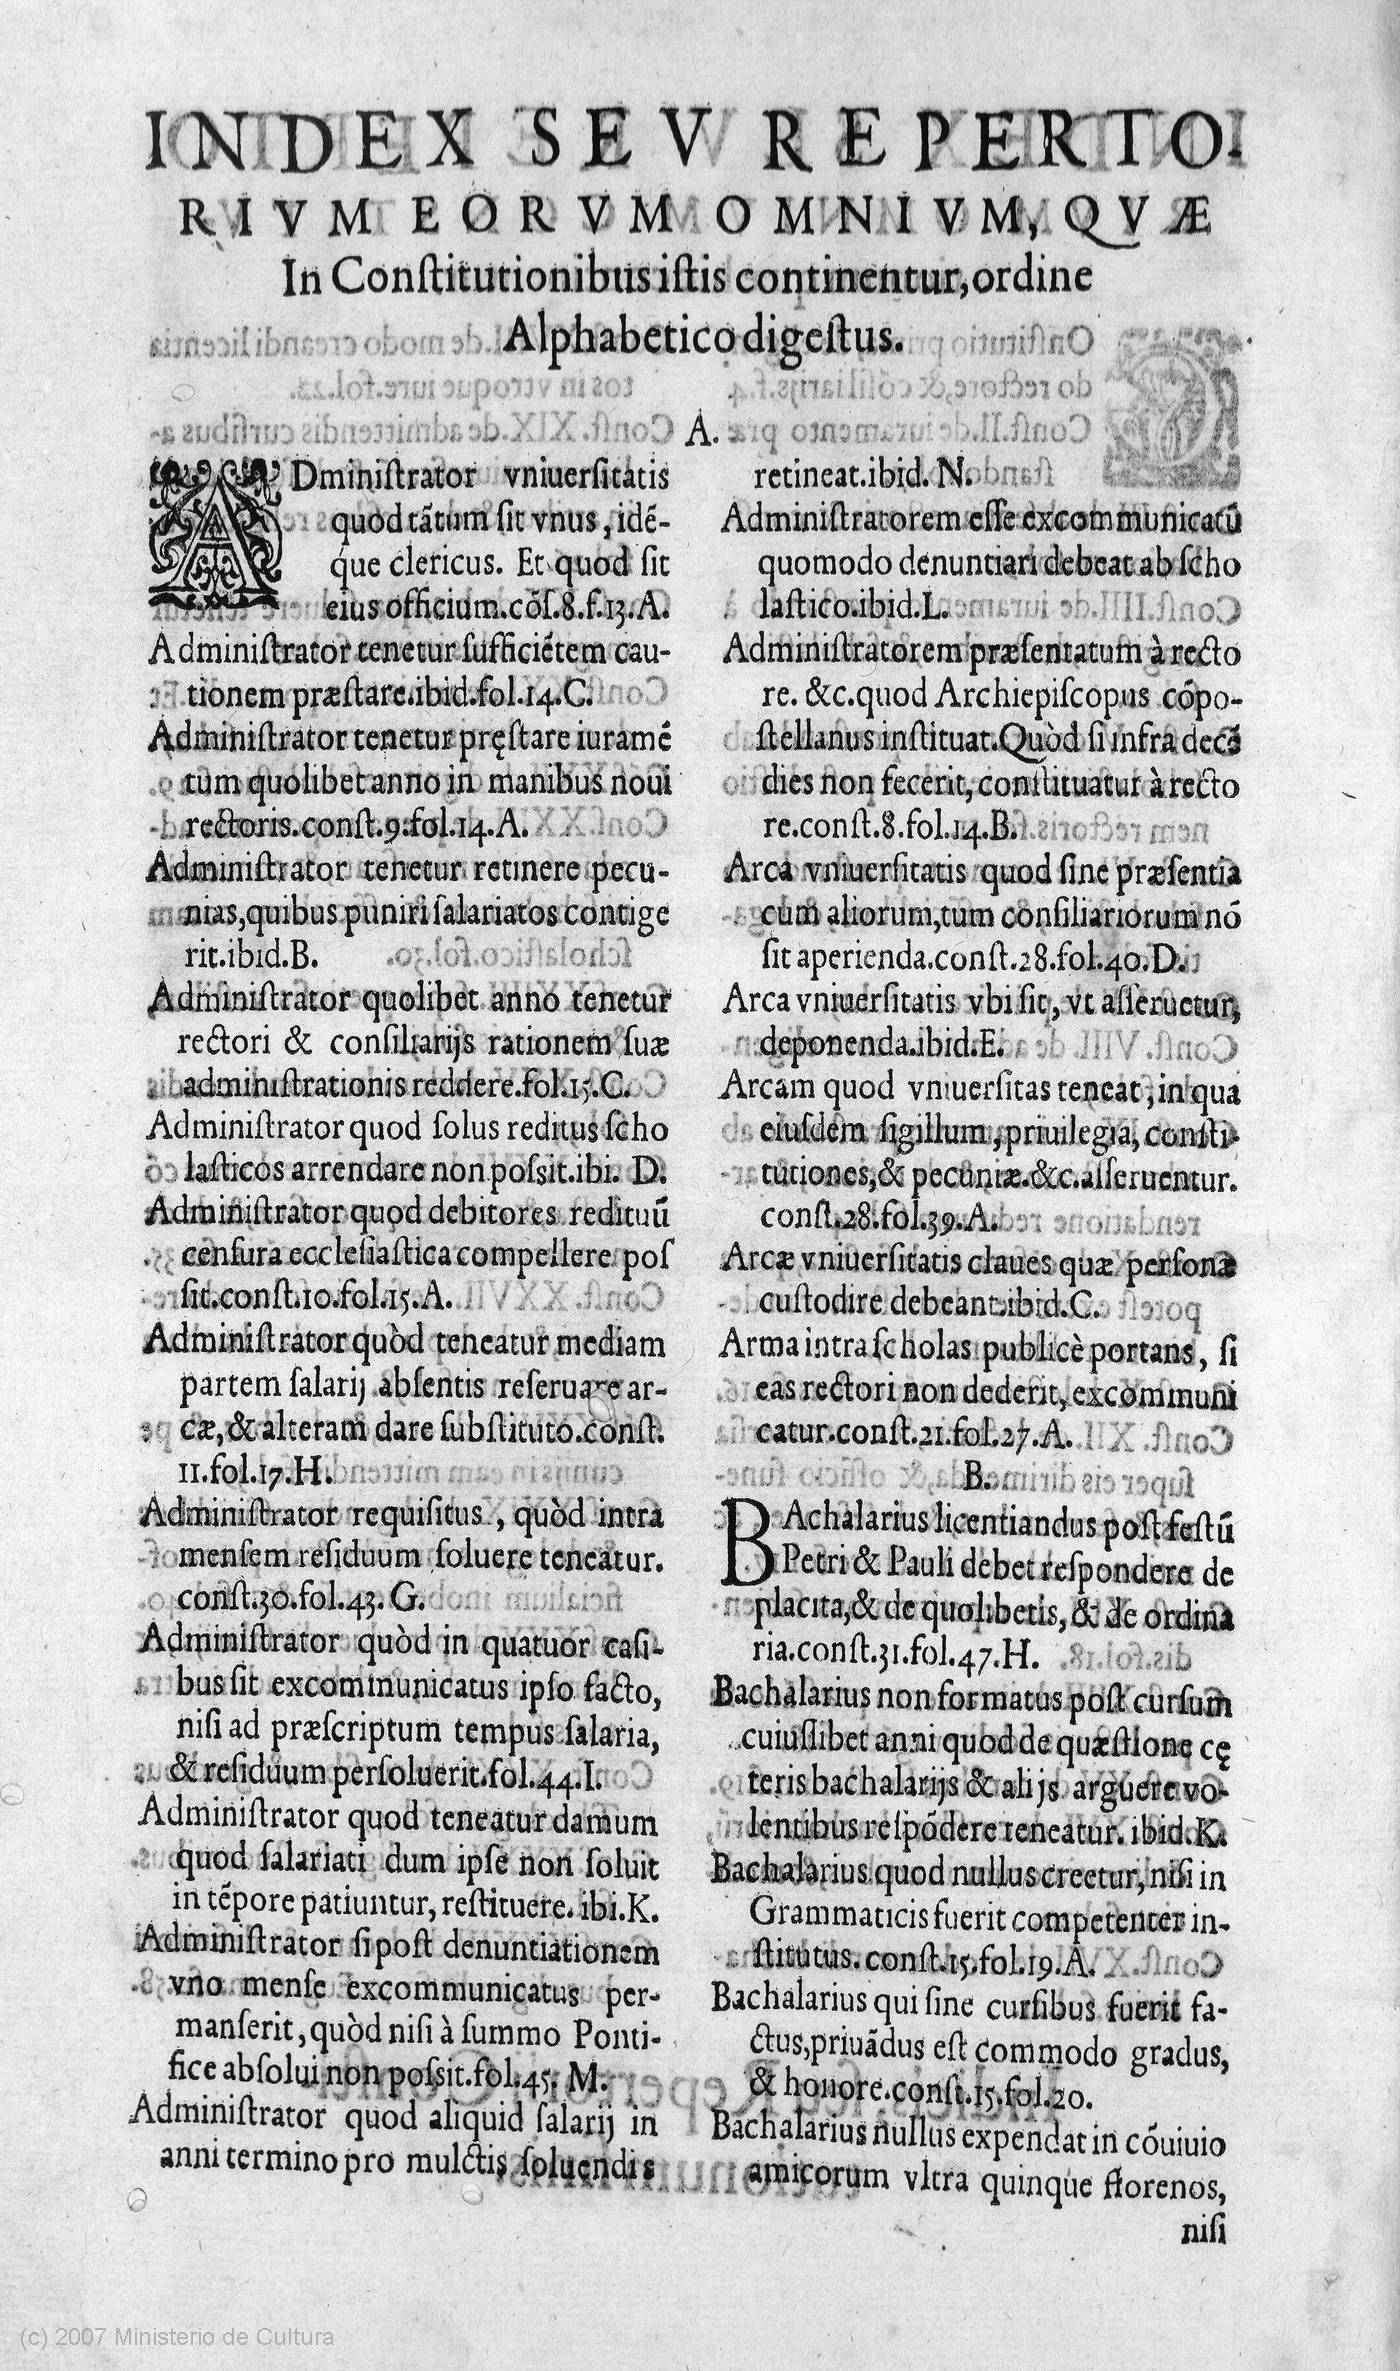 INDEX SEV REPERTO-
RIVM EORVM OMNIVM, QVÆ
In Conſtitutionibus iſtis continentur, ordine
Alphabetico digeſtus.
A.
ADminiſtrator vniuerſitatis
quod tãtum ſit vnus, idẽ-
q́ue clericus. Et quod ſit
eius officium.cõſ.8.f.13.A.
Adminiſtrator tenetur ſufficiẽtem cau-
tionem præſtare.ibid.fol.14.C.
Adminiſtrator tenetur pręſtare iuramẽ
tum quolibet anno in manibus noui
rectoris.conſt.9.fol.14.A.
Adminiſtrator tenetur retinere pecu-
nias,quibus puniri ſalariatos contige
rit.ibid.B.
Adminiſtrator quolibet anno tenetur
rectori & conſiliarijs rationem ſuæ
adminiſtrationis reddere.fol.15.C.
Adminiſtrator quod ſolus reditus ſcho
laſticos arrendare non poſsit.ibi. D.
Adminiſtrator quod debitores redituũ
cenſura eccleſiaſtica compellere poſ
ſit.conſt.10.fol.15.A.
Adminiſtrator quòd teneatur mediam
partem ſalarij abſentis reſeruare ar-
cæ,& alteram dare ſubſtituto.conſt.
11.fol.17.H.
Adminiſtrator requiſitus , quòd intra
menſem reſiduum ſoluere teneatur.
conſt.30.fol.43. G.
Adminiſtrator quòd in quatuor caſi-
bus ſit excommunicatus ipſo facto,
niſi ad præſcriptum tempus ſalaria,
& reſiduum perſoluerit.fol.44.I.
Adminiſtrator quod teneatur damum
quod ſalariati dum ipſe non ſoluit
in tẽpore patiuntur, reſtituere. ibi.K.
Adminiſtrator ſi poſt denuntiationem
vno menſe excommunicatus per-
manſerit, quòd niſi à ſummo Ponti-
fice abſolui non poſsit.fol.45. M.
Adminiſtrator quod aliquid ſalarij in
anni termino pro mulctis ſoluendis
retineat.ibid. N.
Adminiſtratorem eſſe excommunicatũ
quomodo denuntiari debeat ab ſcho
laſtico.ibid.L.
Adminiſtratorem præſentatum à recto
re. &c.quod Archiepiſcopus cõpo-
ſtellanus inſtituat.Quòd ſi infra decẽ
dies non fecerit, conſtituatur à recto
re.conſt.8.fol.14.B.
Arca vniuerſitatis quod ſine præſentia
cum aliorum,tum conſiliariorum nõ
ſit aperienda.conſt.28.fol.40.D.
Arca vniuerſitatis vbi ſit, vt aſſeruetur,
deponenda.ibid.E.
Arcam quod vniuerſitas teneat, in qua
eiuſdem ſigillum, priuilegia, conſti-
tutiones,& pecuniæ.&c.aſſeruentur.
conſt.28.fol.39.A.
Arcæ vniuerſitatis claues quæ perſonæ
cuſtodire debeant.ibid.C.
Arma intra ſcholas publicè portans, ſi
eas rectori non dederit, excommuni
catur.conſt.21.fol.27.A.
B.
BAchalarius licentiandus poſt feſtũ
Petri & Pauli debet reſpondere de
placita,& de quolibetis, & de ordina
ria.conſt.31.fol.47.H.
Bachalarius non formatus poſt curſum
cuiuſlibet anni quod de quæſtione cę
teris bachalarijs & alijs arguere vo-
lentibus reſpõdere teneatur. ibid.K.
Bachalarius quod nullus creetur, niſi in
Grammaticis fuerit competenter in-
ſtitutus. conſt.15.fol.19.A.
Bachalarius qui ſine curſibus fuerit fa-
ctus,priuãdus eſt commodo gradus,
& honore.conſt.15.fol.20.
Bachalarius nullus expendat in cõuiuio
amicorum vltra quinque florenos,
niſi
(c) 2007 Ministerio de Cultura